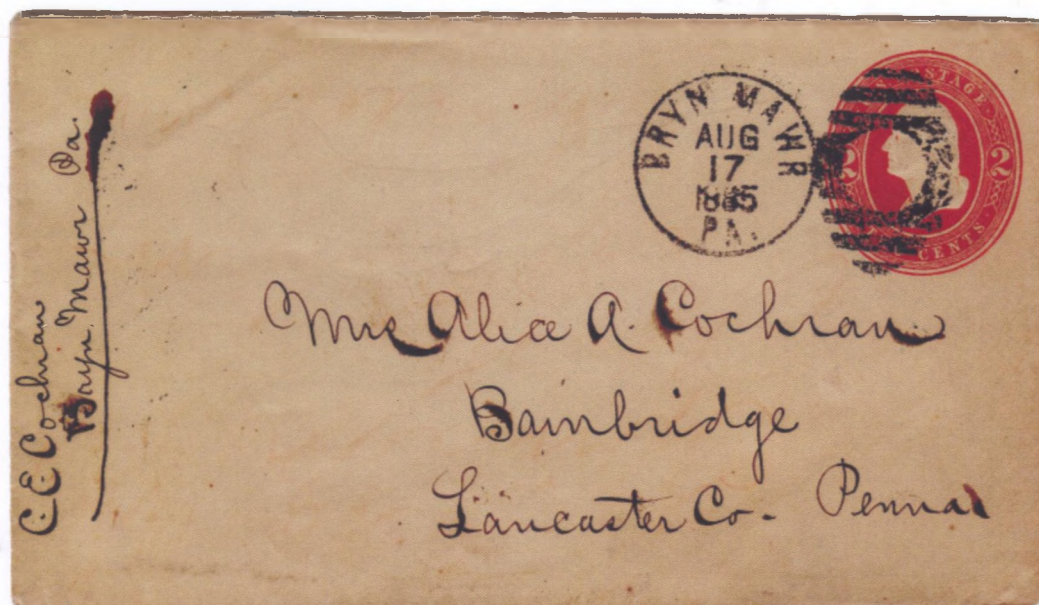 C. E. Cochran
Bryn Mawr Pa.
BRYN MAWR
AUG
17
1885
PA.
POSTAGE
2 2
CENTS
Mrs Alice A. Cochran
Bainbridge
Lancaster Co. Penna